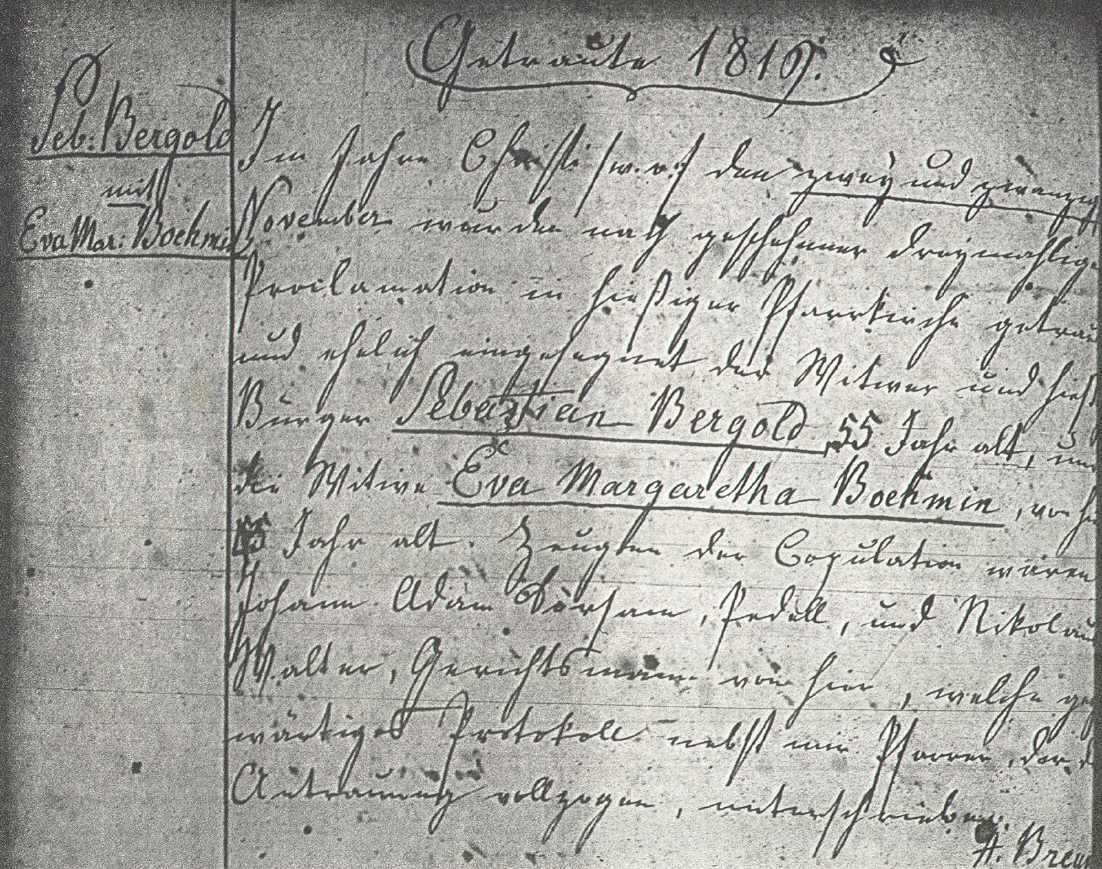 Getraute 1819.
Seb: Bergold
mit
Eva Mar: Boehmin
Im Jahre Christi w. o. den zwey und zwanzig
November wurden nach geschehener dreymahlige
Proclamation in hiesiger Pfarrkirche getrau
und ehelich eingesegnet der Witwer und hies
Bürger Sebastian Bergold, 55 Jahr alt, und
die Witwe Eva Margaretha Boehmin, von hi
Jahr alt. Zeugen der Copulation waren
Johann Adam Dörsam, Pedell, und Nikolau
Walter, Gerichtsmann von hier, welche ge
wärtiges Protokoll nebst mir Pfarrer, der d
Antrauung vollzogen, unterschrieben.
A. Breu